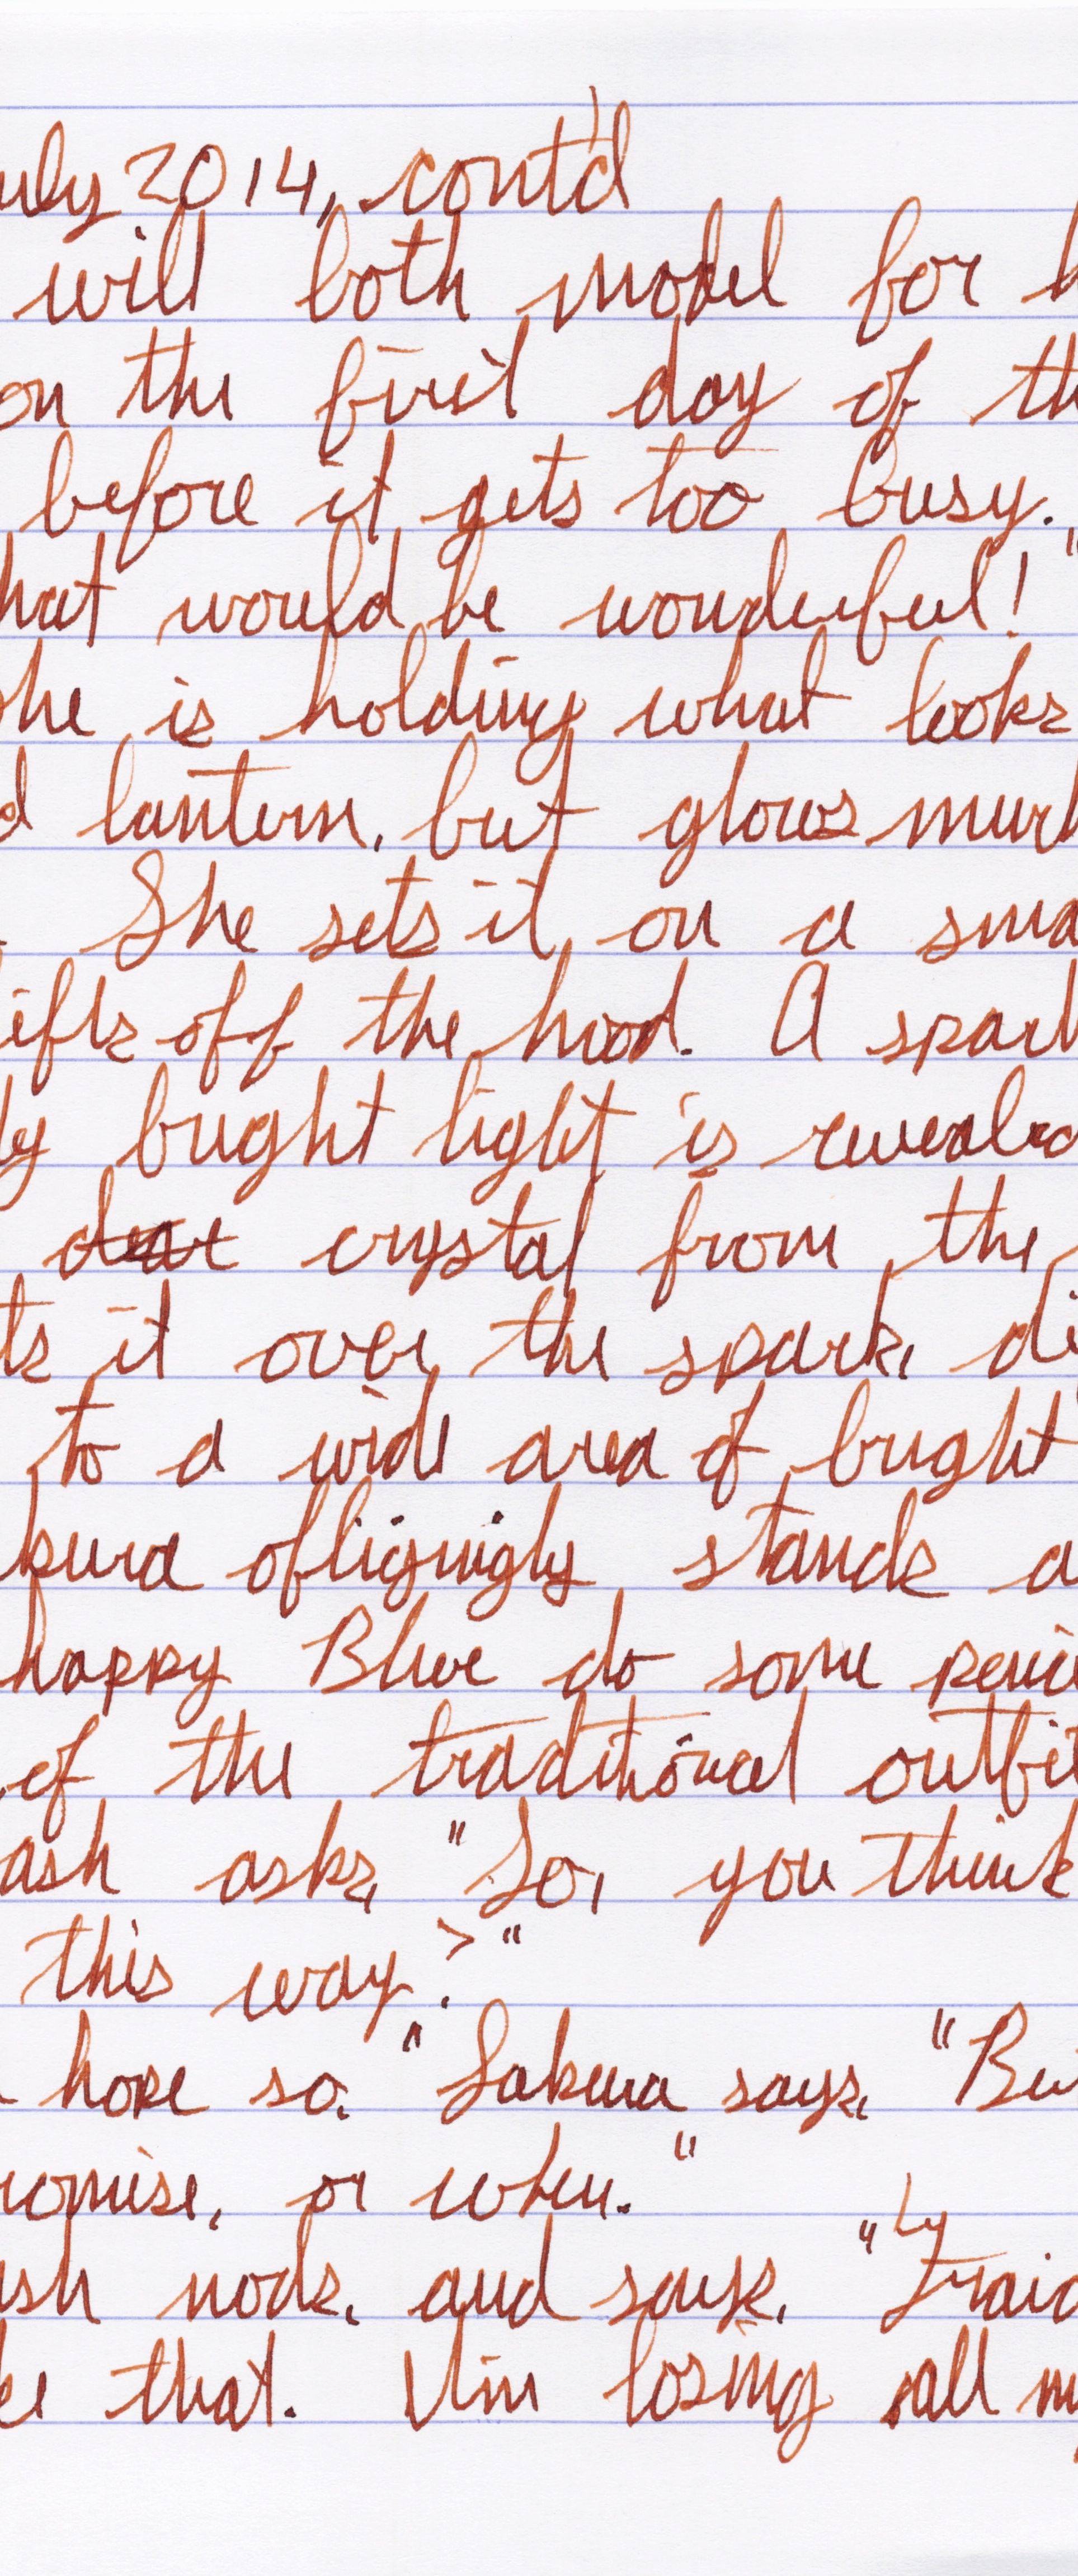 uly 2014, cont'd
will both model for h
on the first day of th
before it gets too busy.
hat would be wonderful!"
he is holding what looks
d lantern, but glows much
. She sets it on a sma
ifts off the hood. A spark
ly bright light is revealed
crystal from the
ts it over the spark, di
to a wide area of bright
kura obligingly stands a
happy Blue do some penci
of the traditional outfit
ash asks, "So, you think
this way?"
hope so." Sakura says, "But
romise, or when."
ash nods, and says, "
that. I'm losing all my